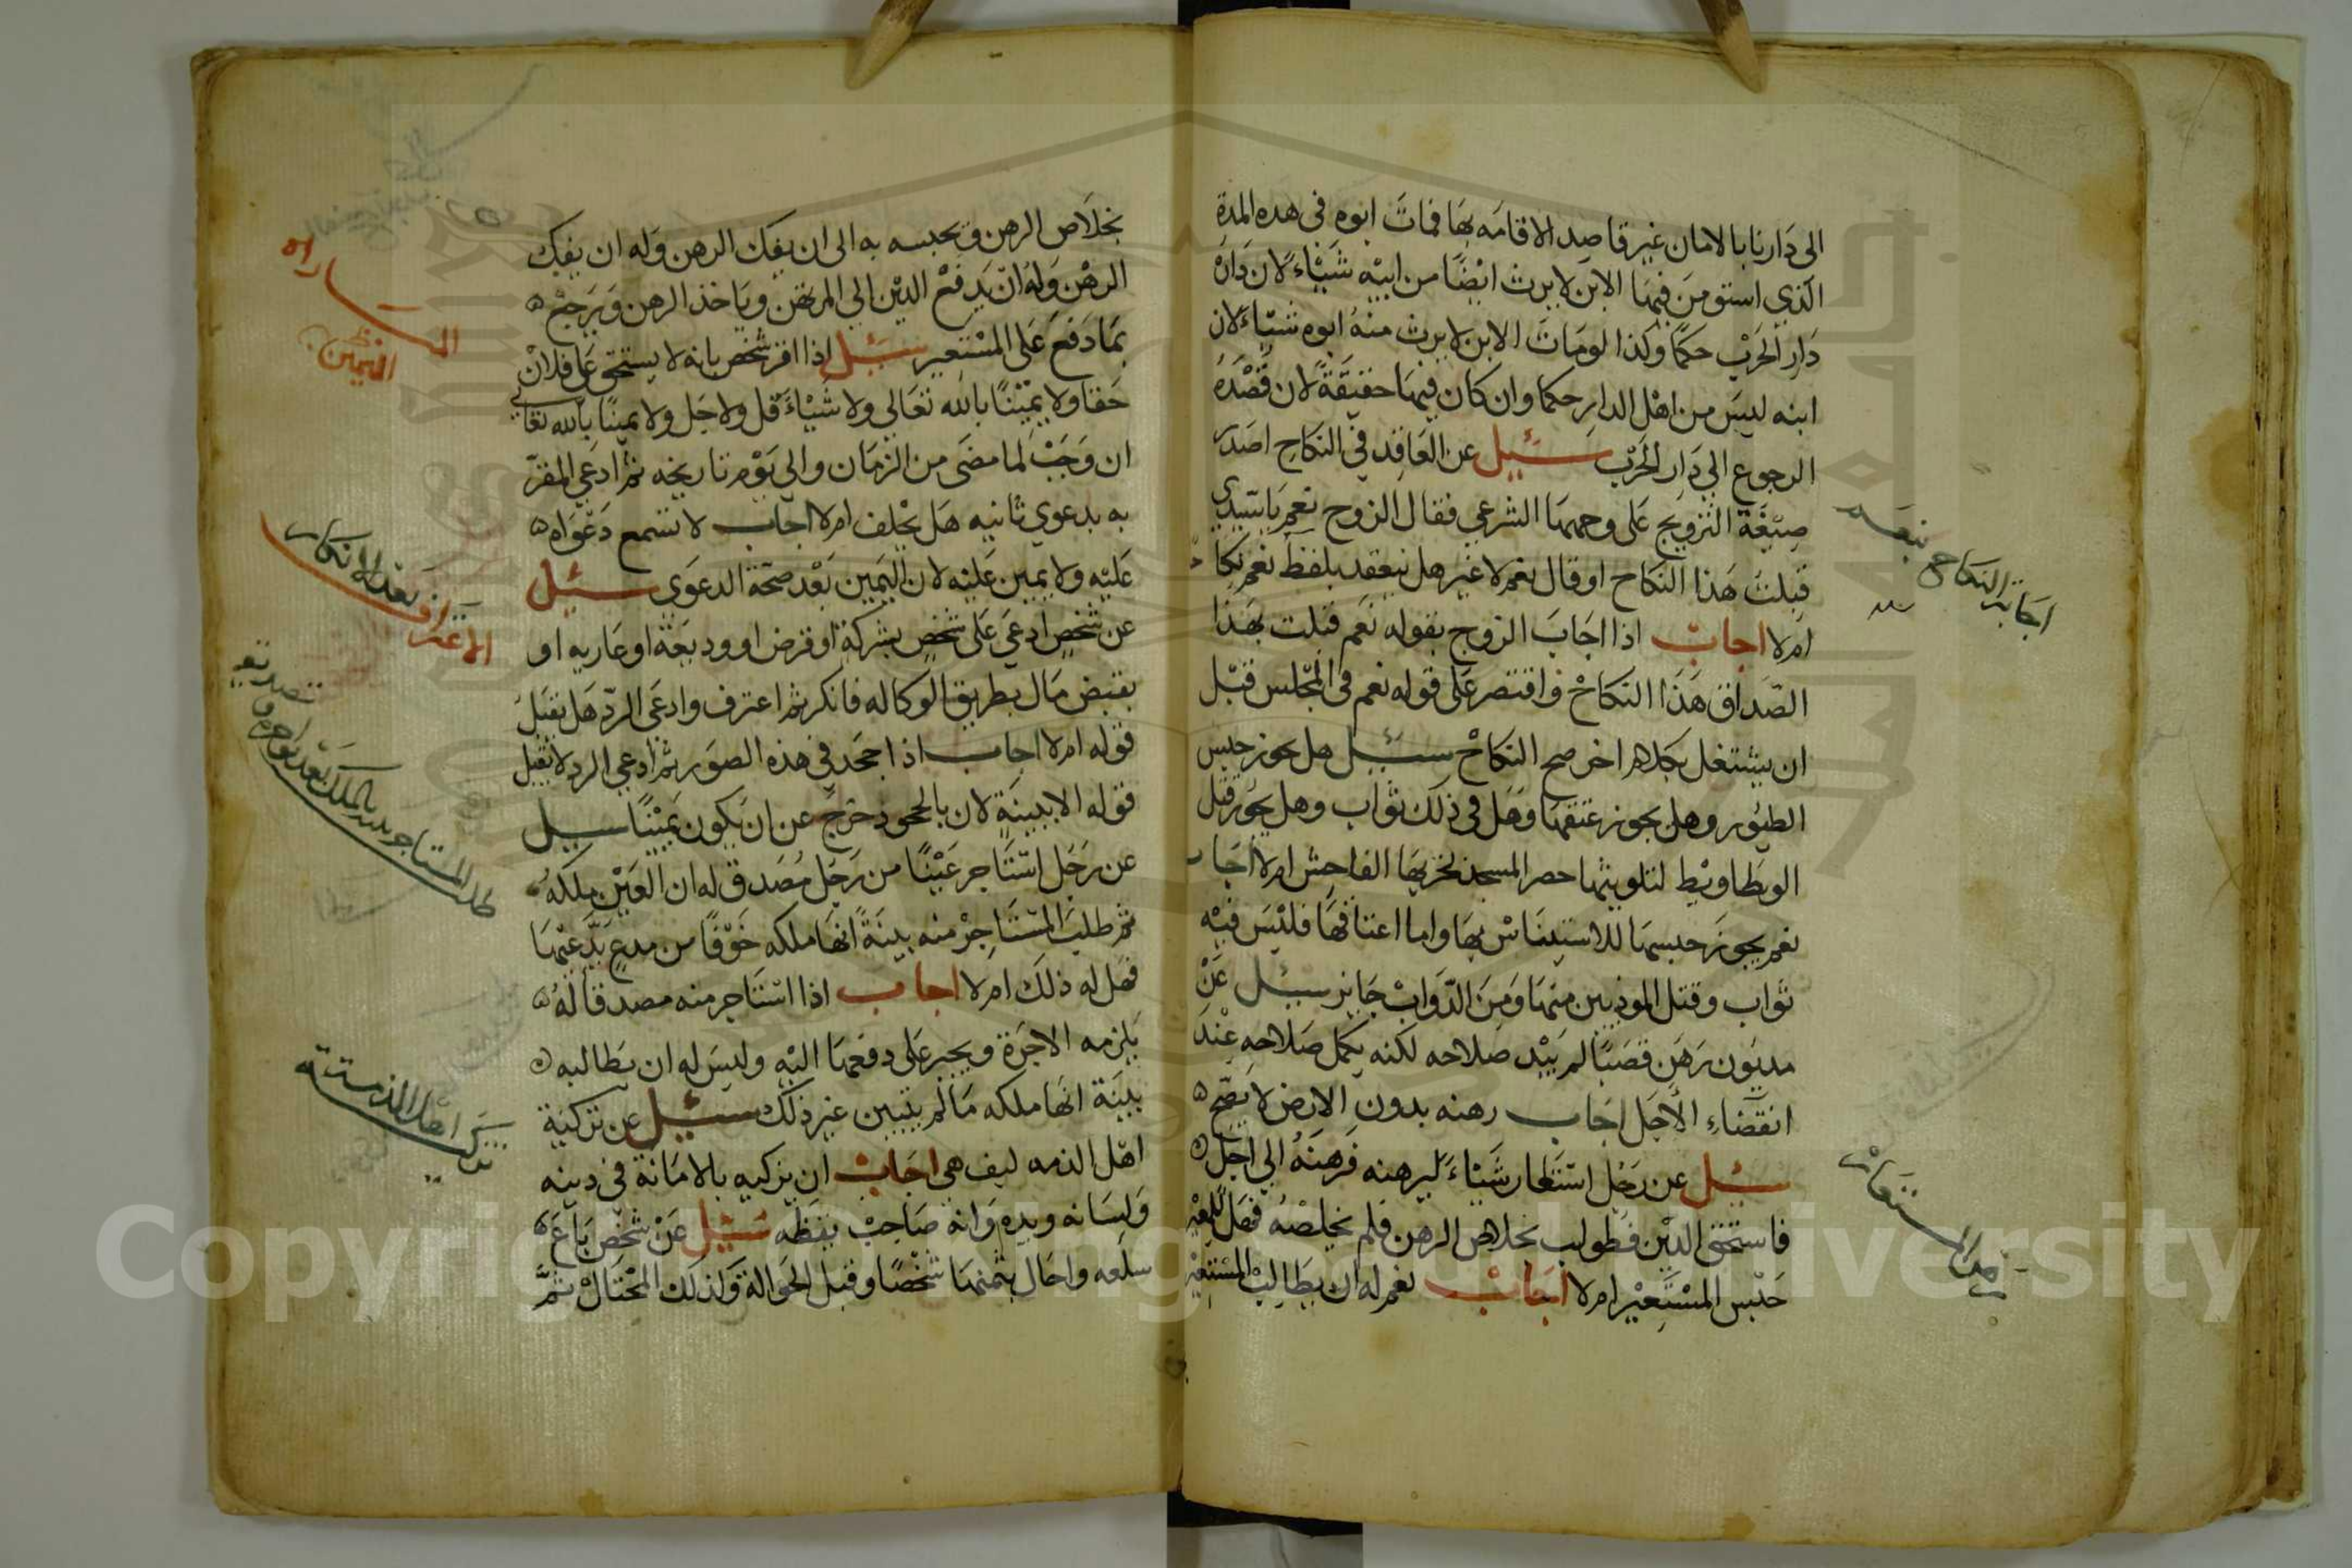 الى دارنا بالامان غير قاصد الاقامه بها فمات ابوه فى هده المدة
الذي استومن فيها الابن لا يرث ايضا من ابيه شياء لان دار
دار الحرب حكما وكذا لو مات الابن لا يرث منه ابوه شياء لان
ابنه ليس من اهل الدار حكما وان كان فيها حقيقة لان قصده
الرجوع الي دار الحرب سيل عن العاقد في النكاح اصدر
صيغة التزويج على وجهها الشرعي فقال الزوج نعم ياسيدي
قبلت هذا النكاح او قال نعم لا غير هل ينعقد بلفظ نعم نكاح
ام لا اجاب اذا اجاب الزوج بقوله نعم قبلت بهذا
الصداق هذا النكاح واقتصر على قوله نعم فى المجلس قبل
ان يشتغل بكلام اخر صح النكاح سيل هل يجوز حبس
الطيور وهل يجوز عتقها وهل فى ذلك ثواب وهل يجوز قتل
الوطاويط لتلويثها حصر المسجد بخريها الفاحش ام لا اجاب
نعم يجوز حبسها للاستيناس بها واما اعتاقها فليس فيه
ثواب وقتل الموذيين منها ومن الدواب جايز سيل عن
مديون رهن قصبا لم يبد صلاحه لكنه يكمل صلاحه عند
انقضاء الاجل اجاب رهنه بدون الارض لا يصح
سيل عن رجل استعار شياء ليرهنه فرهنه الي اجل
فاستحق الدين فطولب بخلاص الرهن فلم يخلصه فهل للمعير
حبس المستعير ام لا اجاب نعم له ان يطالب المستعير
اجابة النكاح بنعم
بخلاص الرهن ويحبسه به الى ان يفك الرهن وله ان يفك
الرهن وله ان يدفع الدين الي المرتهن وياخذ الرهن ويرجع
بما دفع على المستعير سيل اذا اقر شخص بانه لا يستحق على فلان
حقا ولا يمينا بالله تعالى ولا شياء قل ولا جل ولا يمينا بالله تعالي
ان وجب لما مضى من الزمان والي يوم تاريخه ثم ادعي المقر
به بدعوي ثانيه هل يحلف ام لا اجاب لا تسمع دعواه
عليه ولا يمين عليه لان اليمين بعد صحة الدعوى سيل
عن شخص ادعي على شخص بشركة او قرض او وديعة او عاريه او
بقبض مال بطريق الوكاله فانكر ثم اعترف وادعى الرد هل يقبل
قوله ام لا اجاب اذا جحد في هذه الصور ثم ادعي الرد لا يقبل
قوله الا ببينة لان بالجحود خرج عن ان يكون يمينا سيل
عن رجل استاجر عينا من رجل مصدق له ان العين ملكه
ثم طلب المستاجر منه بينة انها ملكه خوفا من مدع يدعيها
فهل له ذلك ام لا اجاب اذا استاجر منه مصدقا له
يلزمه الاجرة ويجبر على دفعها اليه وليس له ان يطالبه
ببينة انها ملكه ما لم يتبين غير ذلك سيل عن تزكية
اهل الذمه كيف هى اجاب ان يزكيه بالامانة في دينه
ولسانه ويده وانه صاحب يقظه سيل عن شخص باع
سلعه واحال بثمنها شخصا وقبل الحوالة وكذلك المحتال ثم
الاعتراف بعد الانكار